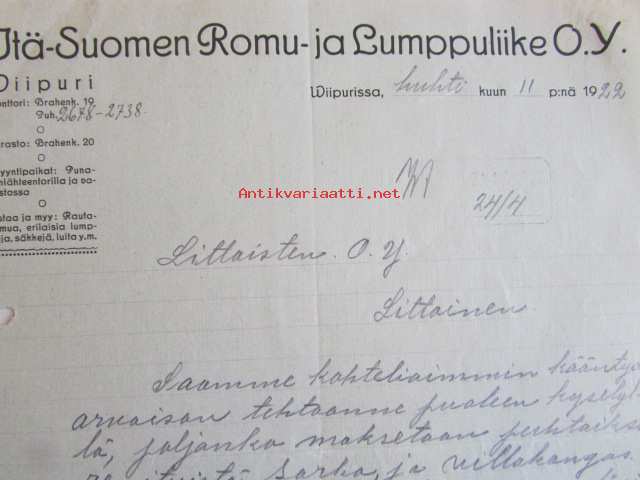 Itä-Suomen Romu- ja Lumppuliike O.Y.
Viipuri
onttori: Brahenk. 19
Puh. 2678-2738.
arasto: Brahenk. 20
yyntipaikat: Puna-
nlähteentorilla ja va-
stassa
staa ja myy: Rauta-
mua, erilaisia lump-
ja, säkkejä, luita y.m.
Wiipurissa, huhti kuun 11 p:nä 1922
Antikvariaatti.net
24/4
Littoisten O.Y.
Littoinen.
Saamme kohteliaimmin kääntyä
arvoisan tehtaanne puoleen kyselyk
lä, paljonko maksetaan puhtaiks
sarka, ja villakangas